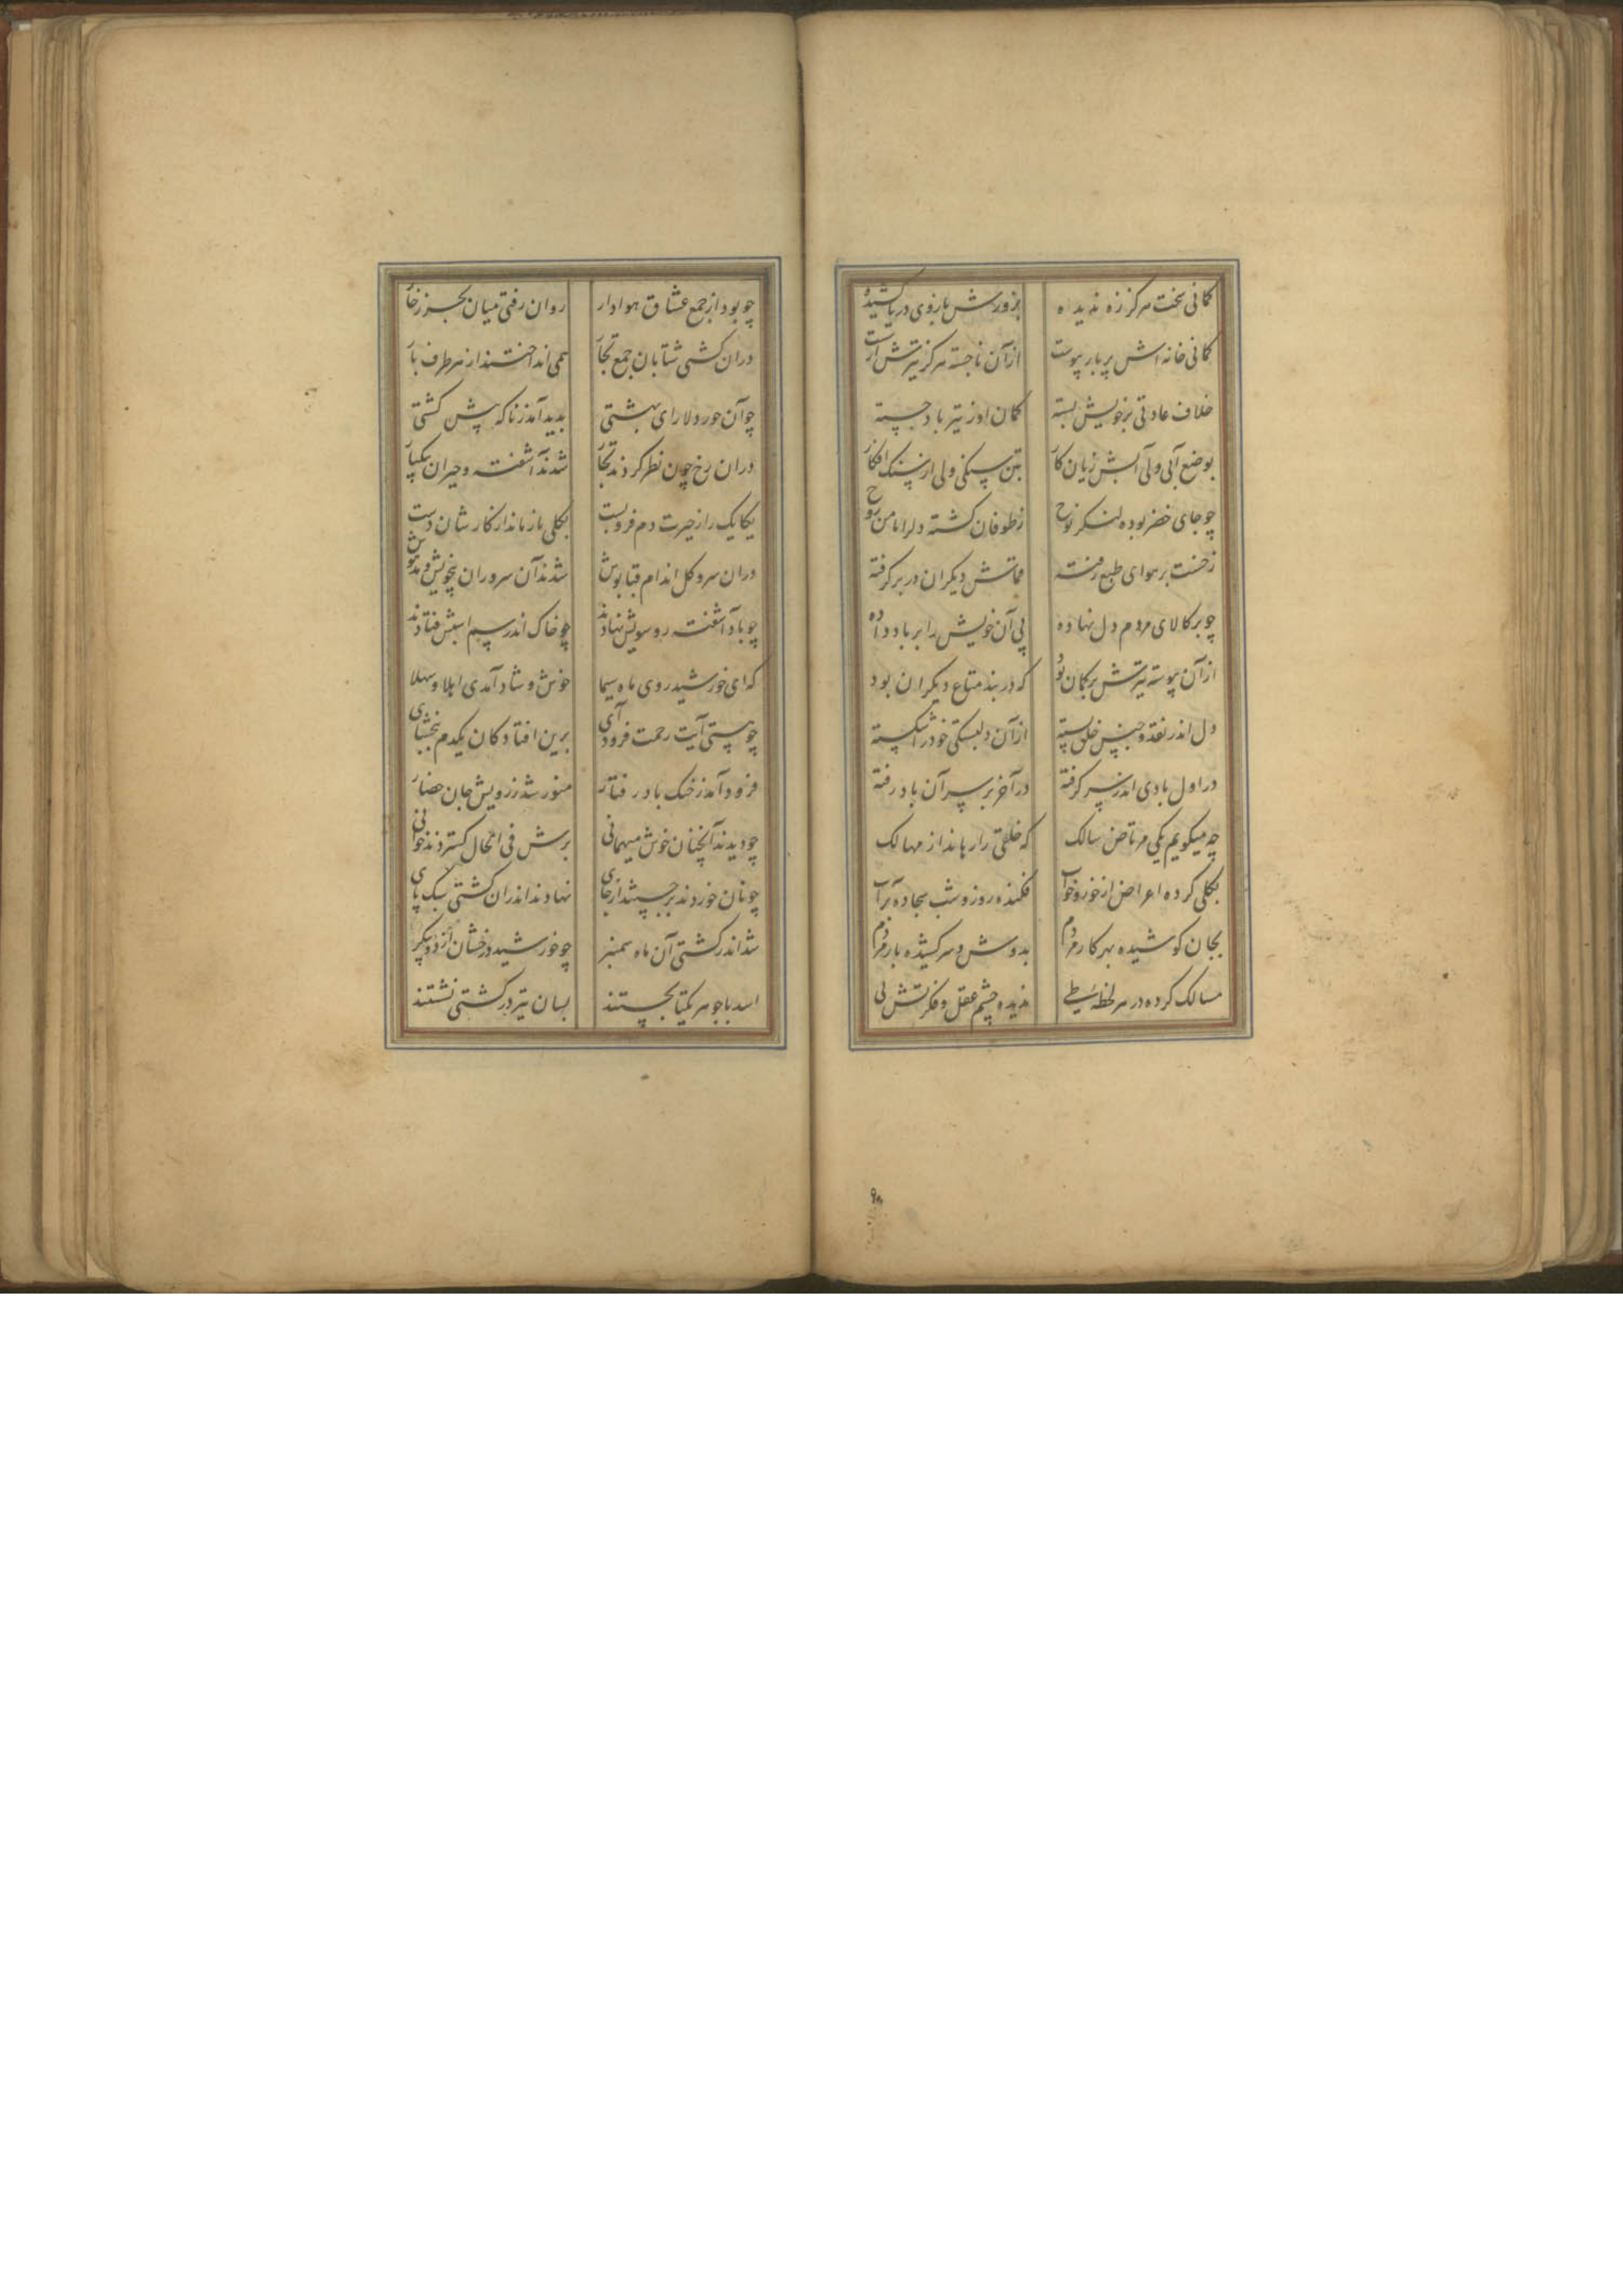 کمانی سخت هرگز زه ندیده بزورش بازوی دریا کشیده
کمانی خانه اش پر بار پیوست از آن ناجسته هرگز تیرش از شست
خلاف عادتی بر خویش بسته کمان او ز تیر باد جسته
بوضع آبی ولی آبش زیان کار بتن سنگی ولی از سنگ افکار
چو جای خضر بوده لنکر نوح ز طوفان کشته دلرا مامن روح
ز خفت بر هوای طبع رفته دیکران در بر کرفته
چو بر کالای مردم دل نهاده پی آن خویش را بر باد داده
از آن پیوسته تیرش بر کمان بود که در بند متاع دیکران بود
دل اندر نقد و جنس خلق بسته از آن دلبستکی خود را شکسته
در اول بادی اندر سر کرفته در آخر بر سر آن باد رفته
چه میکویم یکی مرتاض سالک که خلقی را رهاند از مهالک
بکلی کرده اعراض از خور و خواب فکنده روز و شب سجاده بر آب
بجان کوشیده بهر کار مردم بدوش و سر کشیده بار مردم
مسالک کرده در هر لحظه طی ندیده چشم عقل و فکرتش پی
چو بود از جمع عشاق هوادار روان رفتی میان بحر زخار
دران کشتی شتابان جمع تجار همی انداختند از هر طرف بار
چو آن حور دلارای بهشتی بدید آمد ز ناکه پیش کشتی
دران رخ چون نظر کردند تجار شدند آشفته و حیران بیکبار
یکایک را ز حیرت دم فرو بست بکلی باز ماند از کار شان دست
دران سرو کل اندام قباپوش شدند آن سروران بیخویش و مدهوش
چو باد آشفته رو سویش نهادند چو خاک اندر سم اسبش فتادند
که ای خورشید روی ماه سیما خوش و شاد آمدی اهلا و سهلا
چو هستی آیت رحمت فرود آی برین افتادکان یکدم ببخشای
فرود آمد ز خنک باد رفتار منور شد ز رویش جان حضار
چو دیدند آنچنان خوش میهمانی برش فی الحال کستردند خوانی
چو نان خوردند برجستند از جای نهادند اندران کشتی سبک پای
شد اندر کشتی آن ماه سمنبر چو خورشید درخشان از دو پیکر
اسد با جوهر یکتا بجستند بسان تیر در کشتی نشستند